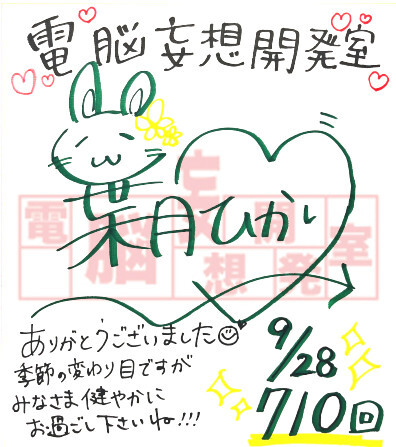 電脳妄想開発室
葉月ひかり
電脳妄想開発室
ありがとうございました
季節の変わり目ですが
みなさま健やかに
お過ごし下さいね!!!
9/28
710回